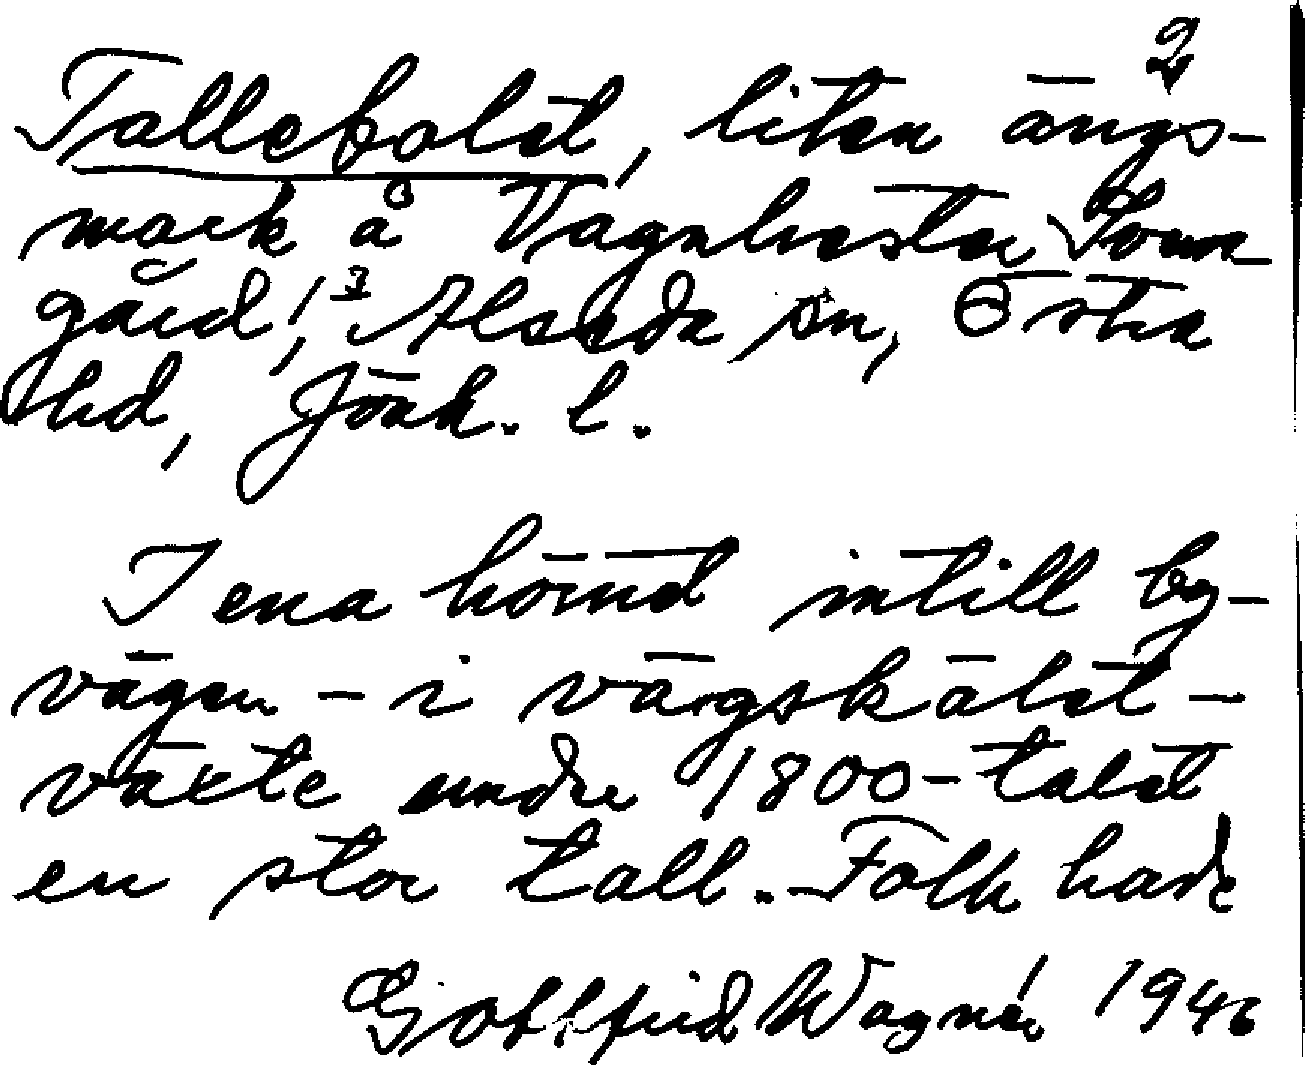 2
Tallefolet, liten ängs-
mark å Vagnhester Tom-
gård, 1/3 Alseda sn, Östra
hd, Jönk. l.
I ena hörnet intill by-
vägen - i vägskälet -
växte under 1800-talet
en stor tall. Folk hade
Gottfrid Wagnér 1946